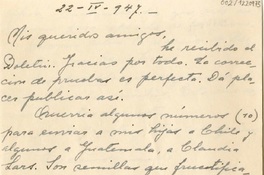 22-IV-947.-
Mis queridos amigos,
he recibido el
Boletín. Gracias por todo. La correc-
ción de pruebas es perfecta. Da pla-
cer publicar así.
Querría algunos números (10)
para enviar a mis hijas a Chile y
algunos a Guatemala, a Claudia
Lars. Son semillas que fructifica